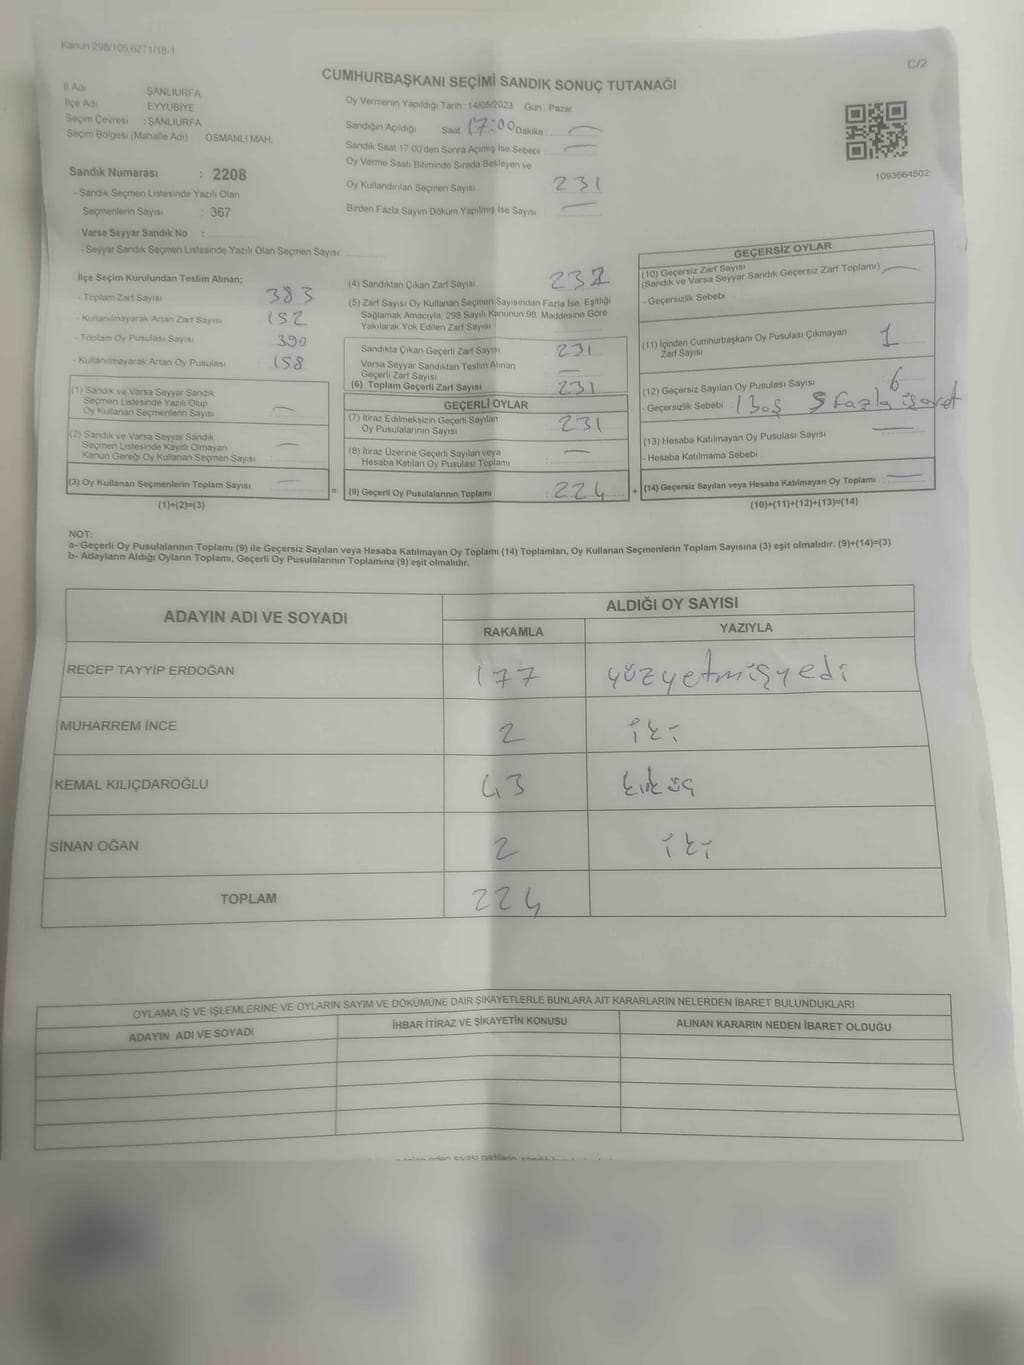 Kanun 298/105 6271/18-1
C/2
CUMHURBAŞKANI SEÇİMİ SANDIK SONUÇ TUTANAĞI
İl Adı ŞANLIURFA
İlçe Adı EYYÜBİYE
Seçim Çevresi : ŞANLIURFA
Seçim Bölgesi (Mahalle Adı) OSMANLI MAH.
Oy Vermenin Yapıldığı Tarih : 14/05/2023 Gün : Pazar
Sandığın Açıldığı Saat 17:00 Dakika
Sandık Saat 17:00'den Sonra Açılmış İse Sebebi
Oy Verme Saati Bitiminde Sırada Bekleyen ve
Oy Kullandırılan Seçmen Sayısı 231
Birden Fazla Sayım Döküm Yapılmış İse Sayısı
1093664502
Sandık Numarası : 2208
- Sandık Seçmen Listesinde Yazılı Olan
Seçmenlerin Sayısı : 367
Varsa Seyyar Sandık No :
- Seyyar Sandık Seçmen Listesinde Yazılı Olan Seçmen Sayısı:
İlçe Seçim Kurulundan Teslim Alınan;
- Toplam Zarf Sayısı 383
- Kullanılmayarak Artan Zarf Sayısı 152
- Toplam Oy Pusulası Sayısı 390
- Kullanılmayarak Artan Oy Pusulası 158
(1) Sandık ve Varsa Seyyar Sandık
Seçmen Listesinde Yazılı Olup
Oy Kullanan Seçmenlerin Sayısı
(2) Sandık ve Varsa Seyyar Sandık
Seçmen Listesinde Kayıtlı Olmayan
Kanun Gereği Oy Kullanan Seçmen Sayısı
(3) Oy Kullanan Seçmenlerin Toplam Sayısı
(1)+(2)=(3)
=
(4) Sandıktan Çıkan Zarf Sayısı 231
(5) Zarf Sayısı Oy Kullanan Seçmen Sayısından Fazla İse, Eşitliği
Sağlamak Amacıyla, 298 Sayılı Kanunun 98. Maddesine Göre
Yakılarak Yok Edilen Zarf Sayısı
Sandıkta Çıkan Geçerli Zarf Sayısı 231
Varsa Seyyar Sandıktan Teslim Alınan
Geçerli Zarf Sayısı
(6) Toplam Geçerli Zarf Sayısı 231
GEÇERLİ OYLAR
(7) İtiraz Edilmeksizin Geçerli Sayılan
Oy Pusulalarının Sayısı : 231
(8) İtiraz Üzerine Geçerli Sayılan veya
Hesaba Katılan Oy Pusulası Toplamı
(9) Geçerli Oy Pusulalarının Toplamı : 224
+
GEÇERSİZ OYLAR
(10) Geçersiz Zarf Sayısı
(Sandık ve Varsa Seyyar Sandık Geçersiz Zarf Toplamı)
- Geçersizlik Sebebi
(11) İçinden Cumhurbaşkanı Oy Pusulası Çıkmayan
Zarf Sayısı 1
(12) Geçersiz Sayılan Oy Pusulası Sayısı 6
- Geçersizlik Sebebi : 1 Boş 5 Fazla işaret
(13) Hesaba Katılmayan Oy Pusulası Sayısı
- Hesaba Katılmama Sebebi
(14) Geçersiz Sayılan veya Hesaba Katılmayan Oy Toplamı
(10)+(11)+(12)+(13)=(14)
NOT:
a- Geçerli Oy Pusulalarının Toplamı (9) ile Geçersiz Sayılan veya Hesaba Katılmayan Oy Toplamı (14) Toplamları, Oy Kullanan Seçmenlerin Toplam Sayısına (3) eşit olmalıdır. (9)+(14)=(3)
b- Adayların Aldığı Oyların Toplamı, Geçerli Oy Pusulalarının Toplamına (9) eşit olmalıdır.
ADAYIN ADI VE SOYADI ALDIĞI OY SAYISI
RAKAMLA YAZIYLA
RECEP TAYYİP ERDOĞAN 177 yüzyetmişyedi
MUHARREM İNCE 2 iki
KEMAL KILIÇDAROĞLU 43 kırküç
SİNAN OĞAN 2 iki
TOPLAM 224
OYLAMA İŞ VE İŞLEMLERİNE VE OYLARIN SAYIM VE DÖKÜMÜNE DAİR ŞİKAYETLERLE BUNLARA AİT KARARLARIN NELERDEN İBARET BULUNDUKLARI
ADAYIN ADI VE SOYADI İHBAR İTİRAZ VE ŞİKAYETİN KONUSU ALINAN KARARIN NEDEN İBARET OLDUĞU